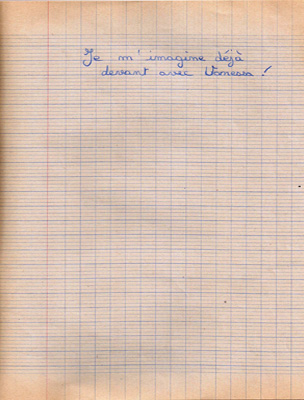 Je m'imagine déjà
devant avec Vanessa !